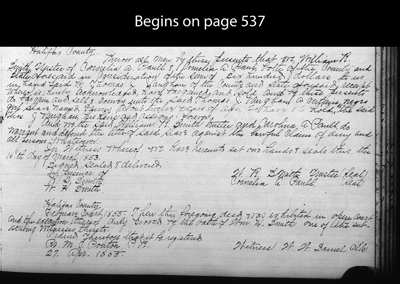 Begins on page 537
Halifax County.
Know all Men by these presents that we, William R.
Smith Trustee of Cornelia A. Faulk & Cornelia A. Faulk both of the County and
State aforesaid in Consideration of the Sum of Six hundred dollars to us
in hand paid by Thomas G. Vaughan of the County and State aforesaid receipt
whereof is hereby acknowledged have bargained and sold and by these presents
do bargain and sell & convey unto the said Thomas G. Vaughan a certain negro
To hold the said
Thos G. Vaughan his heirs and assigns forever.
And we the said William R. Smith Trustee and Cornelia A. Faulk do
warrant and defend the title of said slave against the lawful claims of any and
all persons whatsoever.
In Witness Whereof we have hereunto set our hands & seals this the
16th Day of March, 1853.
Signed Sealed & delivered
in presence of
W. R. Smith Trustee (Seal)
Cornelia A. Faulk (Seal)
W. H. Smith
Halifax County,
Then this foregoing deed was exhibited in open court
and the execution thereof duly proved by the oath of Wm H. Smith one of the sub-
scribing witnesses thereto.
Ordered therefore that it be registered
Witness W. W. Daniel Clk